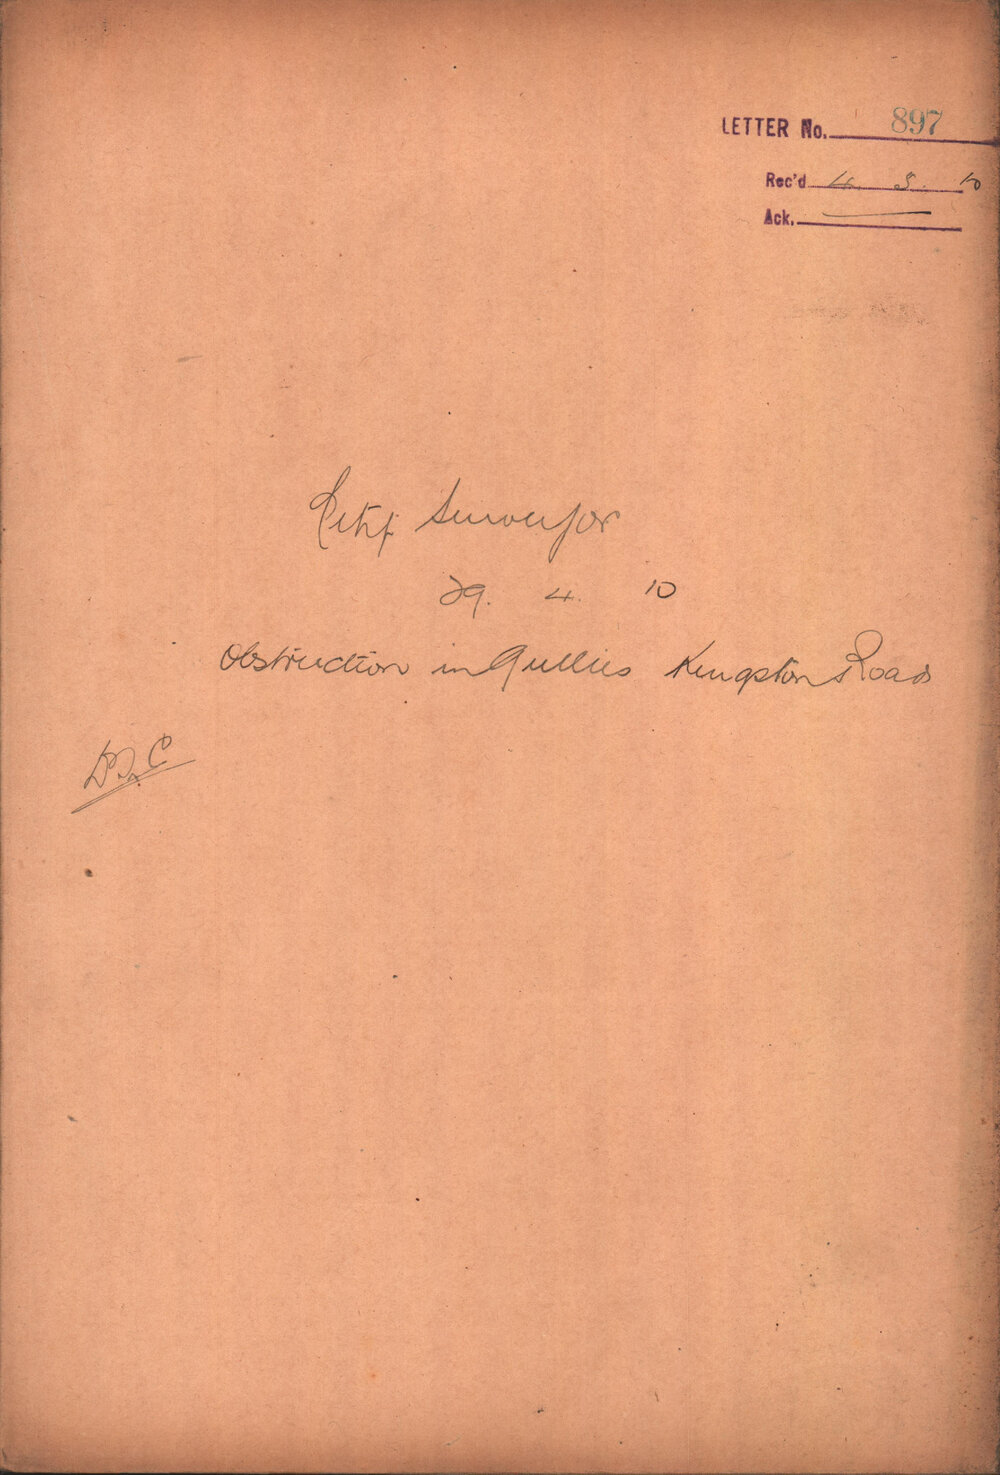 LETTER No. 897
Rec'd 4. 5. 10
Ack.
City Surveyor
29. 4. 10
Obstruction in Gullies Kingston Road